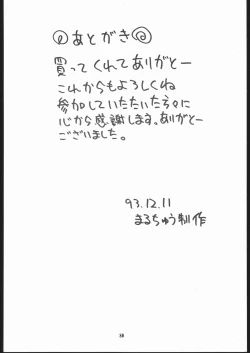 @あとがき@
買ってくれてありがとー
これからもよろしくね
参加していたたいた方々に
心から感謝します。ありがとー
ございました。
93.12.11
まるちゅう制作